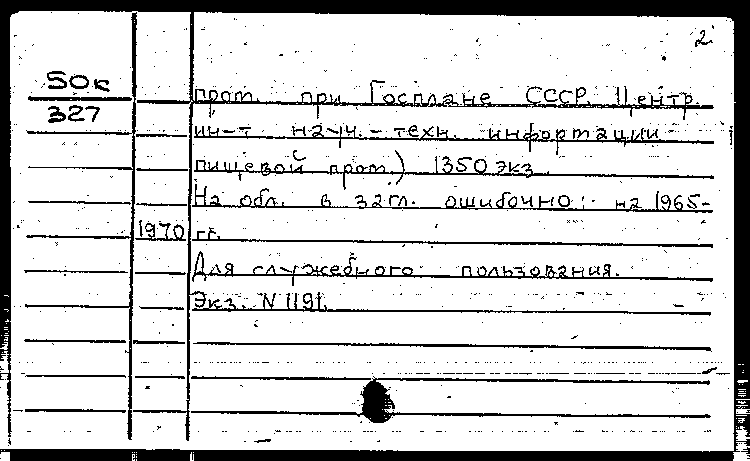 2
50к
327
пром. при Госплане СССР. Центр.
ин-т науч.-техн. информации
пищевой пром.) 1350 экз.
На обл. в загл. ошибочно: на 1965-
1970 гг.
Для служебного пользования.
Экз. N 1191.